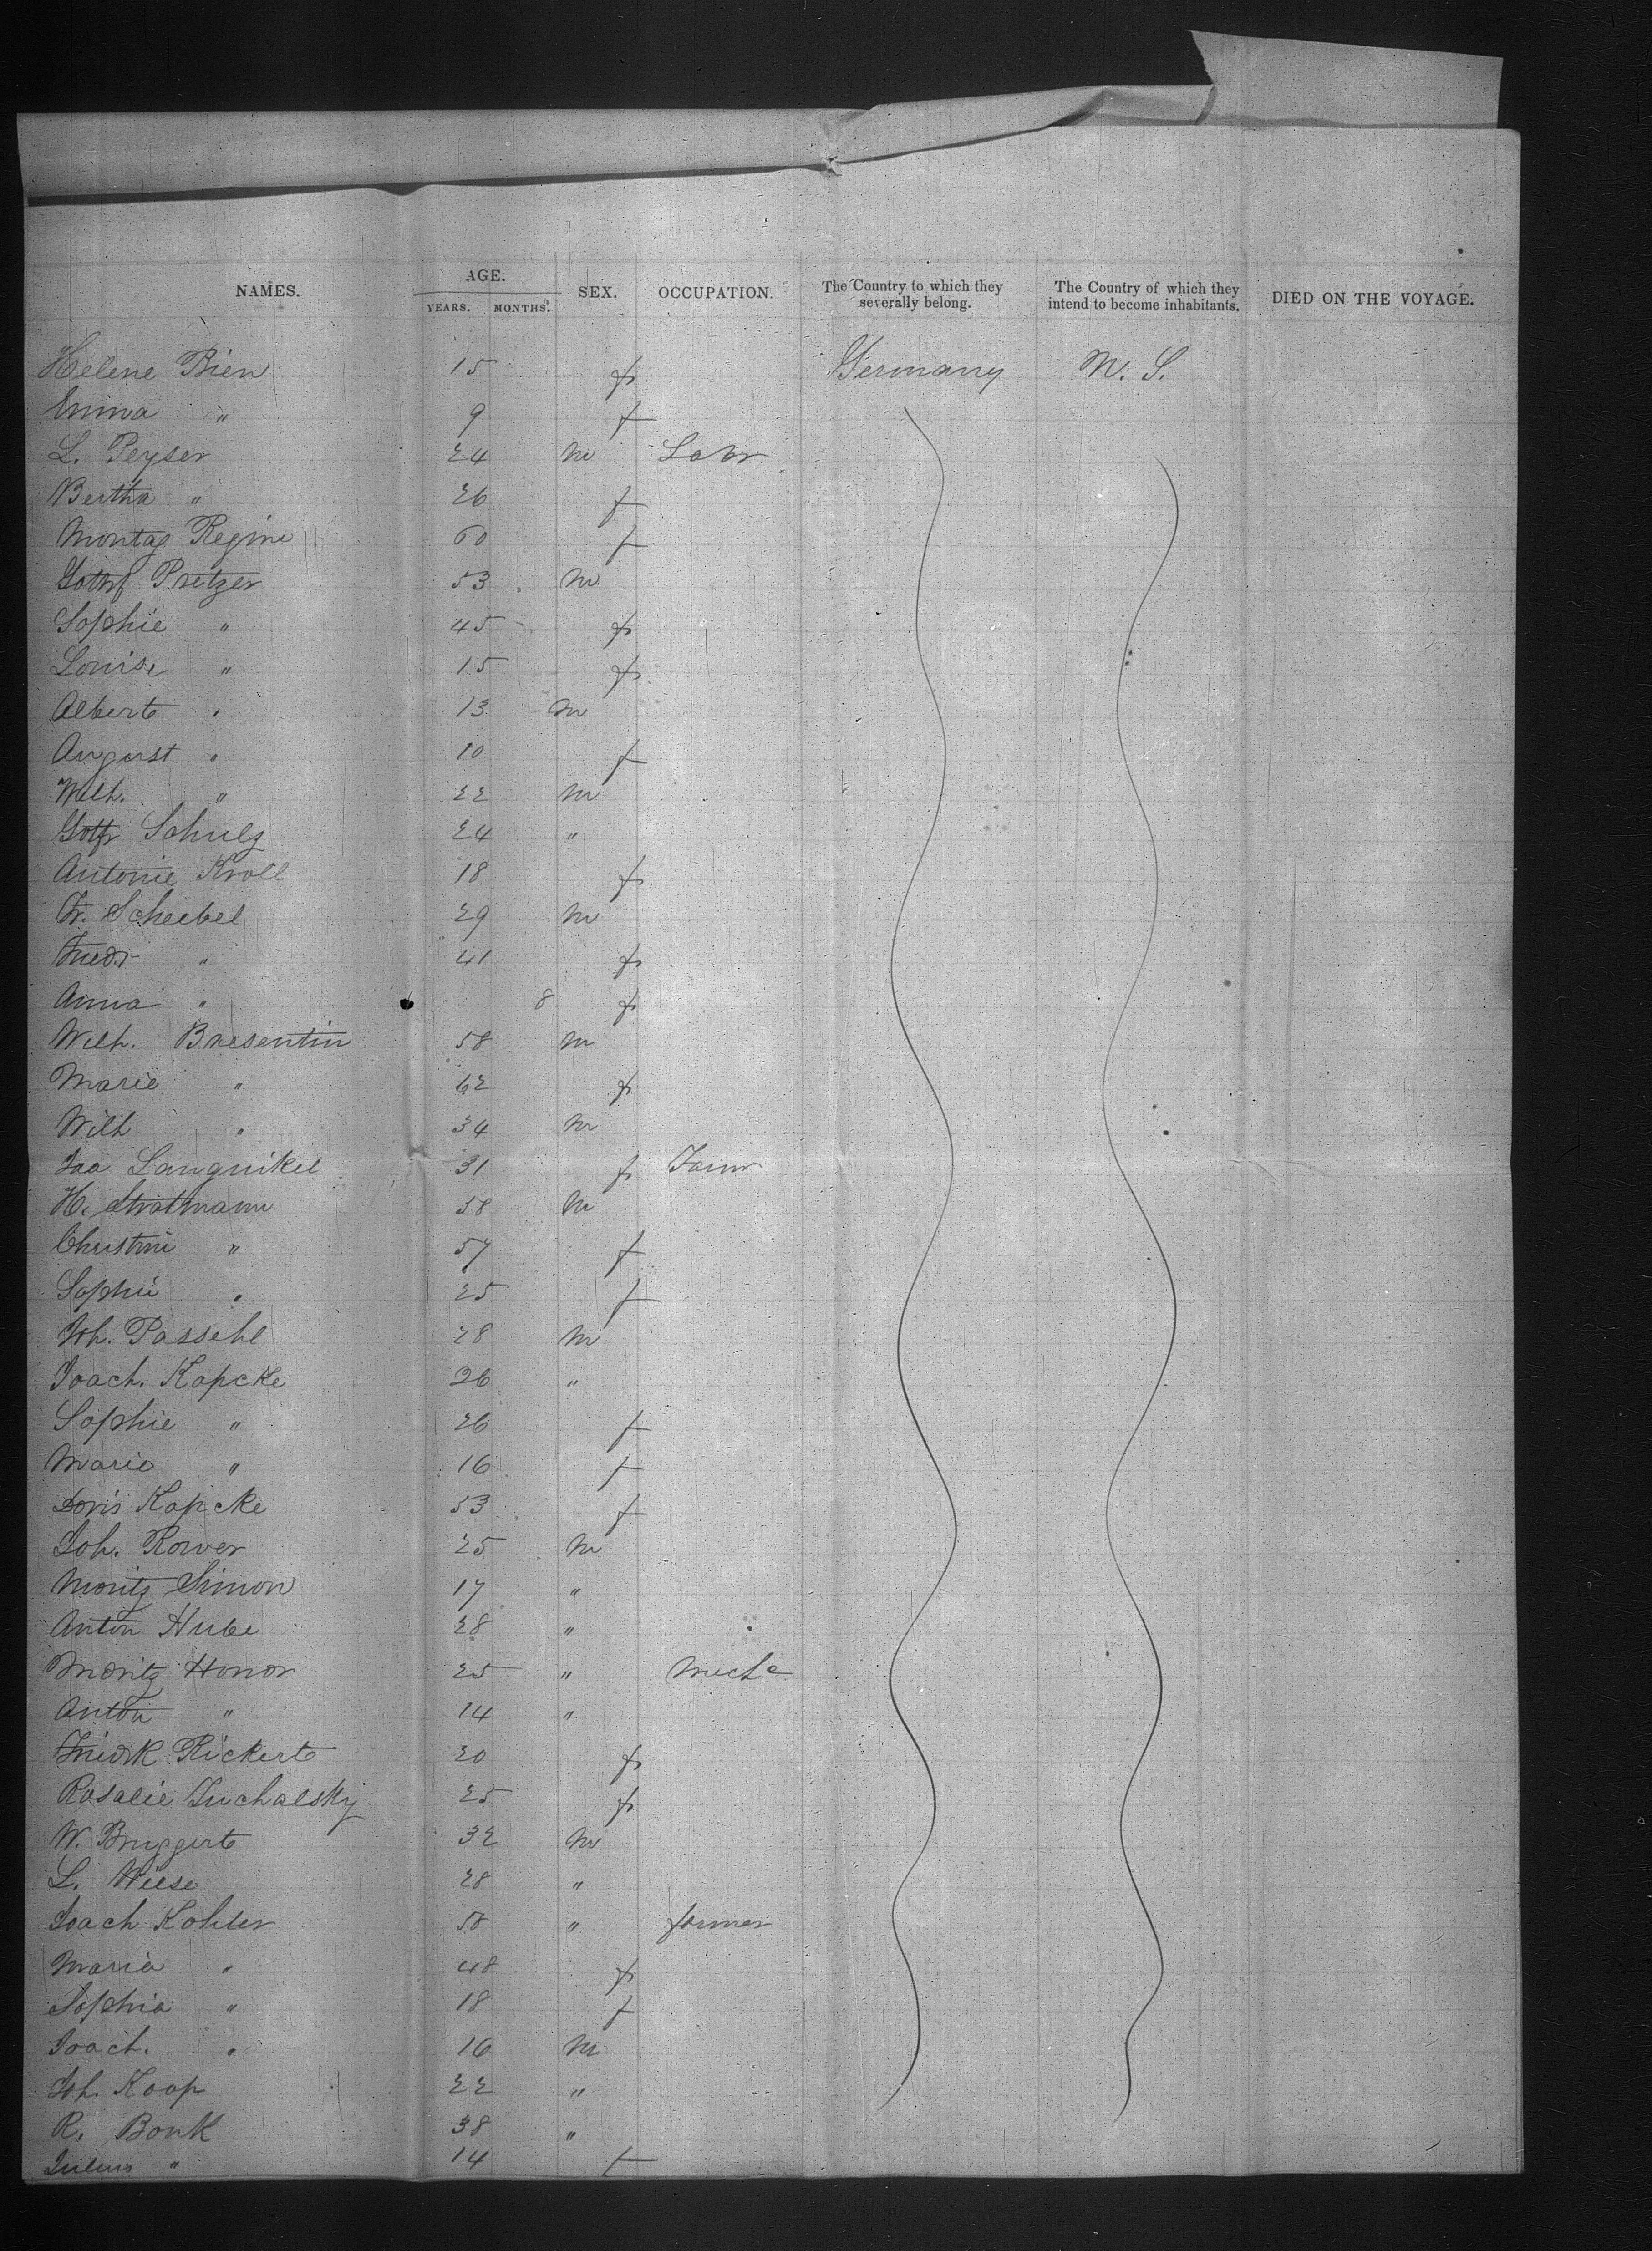 NAMES. AGE. SEX. OCCUPATION. The Country to which they severally belong. The Country of which they intend to become inhabitants. DIED ON THE VOYAGE.
YEARS. MONTHS.
Helene Bien 15 f Germany U. S.
Emma " 9 f
L. Peyser 24 m Labr
Bertha " 26 f
Montag Regine 60 f
Gottf Pretzer 53 m
Sophie " 45 f
Louise " 15 f
Albert " 13 m
August " 10 f
Wilh. " 22 m
Gottfr Schulz 24 "
Antonie Kroll 18 f
Fr. Scheibel 29 m
Friedr " 41 f
Anna " 8 f
Wilh. Bresentin 58 m
Marie " 62 f
Wilh " 34 m
Ida Langnikel 31 f Farmr
H. Strattmann 58 m
Christine " 57 f
Sophie " 25 f
Joh. Passehl 28 m
Joach. Kopcke 26 "
Sophie " 26 f
Marie " 16 f
Doris Kopcke 53 f
Joh. Rower 25 m
Moritz Simon 17 "
Anton Hube 28 "
Moritz Honor 25 " Mechc
Anton " 14 "
Friedrk Rickert 20 f
Rosalie Tuchalsky 25 f
W. Bruggert 32 m
L. Wiese 28 "
Joach Kohler 50 " farmer
Maria " 48 f
Sophia " 18 f
Joach. " 16 m
Joh. Koop 22 "
R. Bonk 38 "
Julius " 14 f